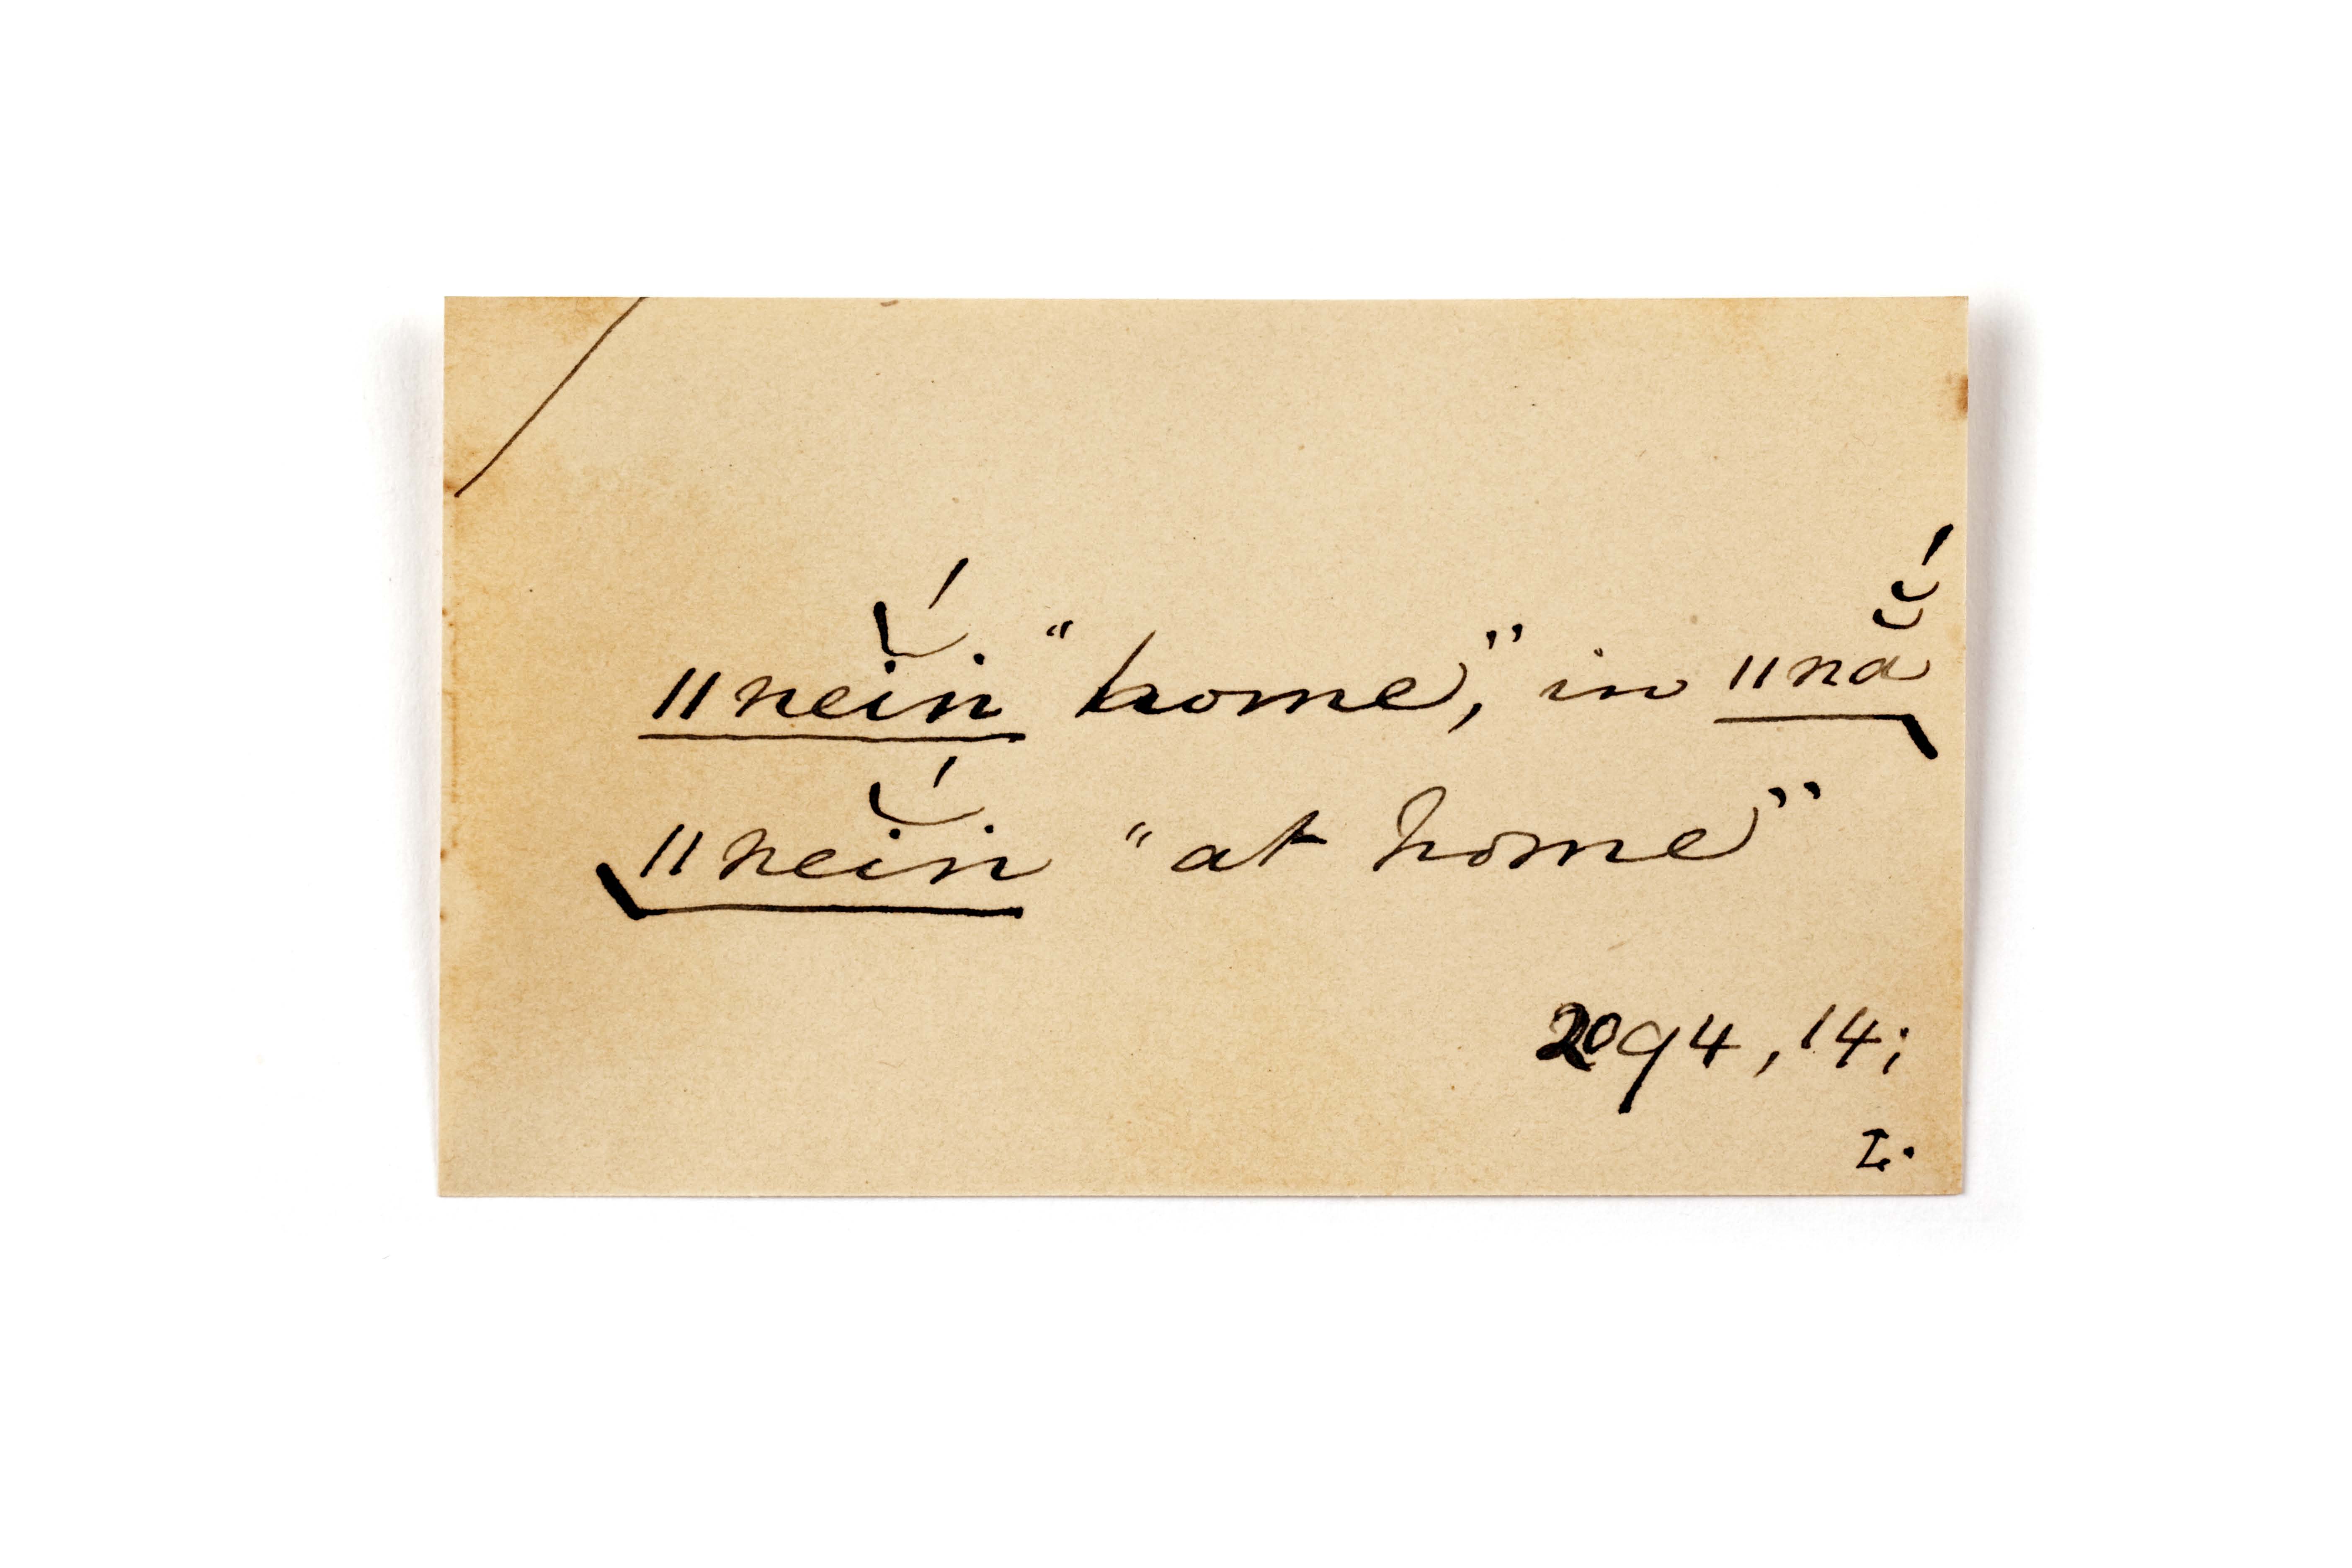 ǁneĭń "home," in ǁnă̆́
ǁneĭń "at home"
2094, 14;
L.